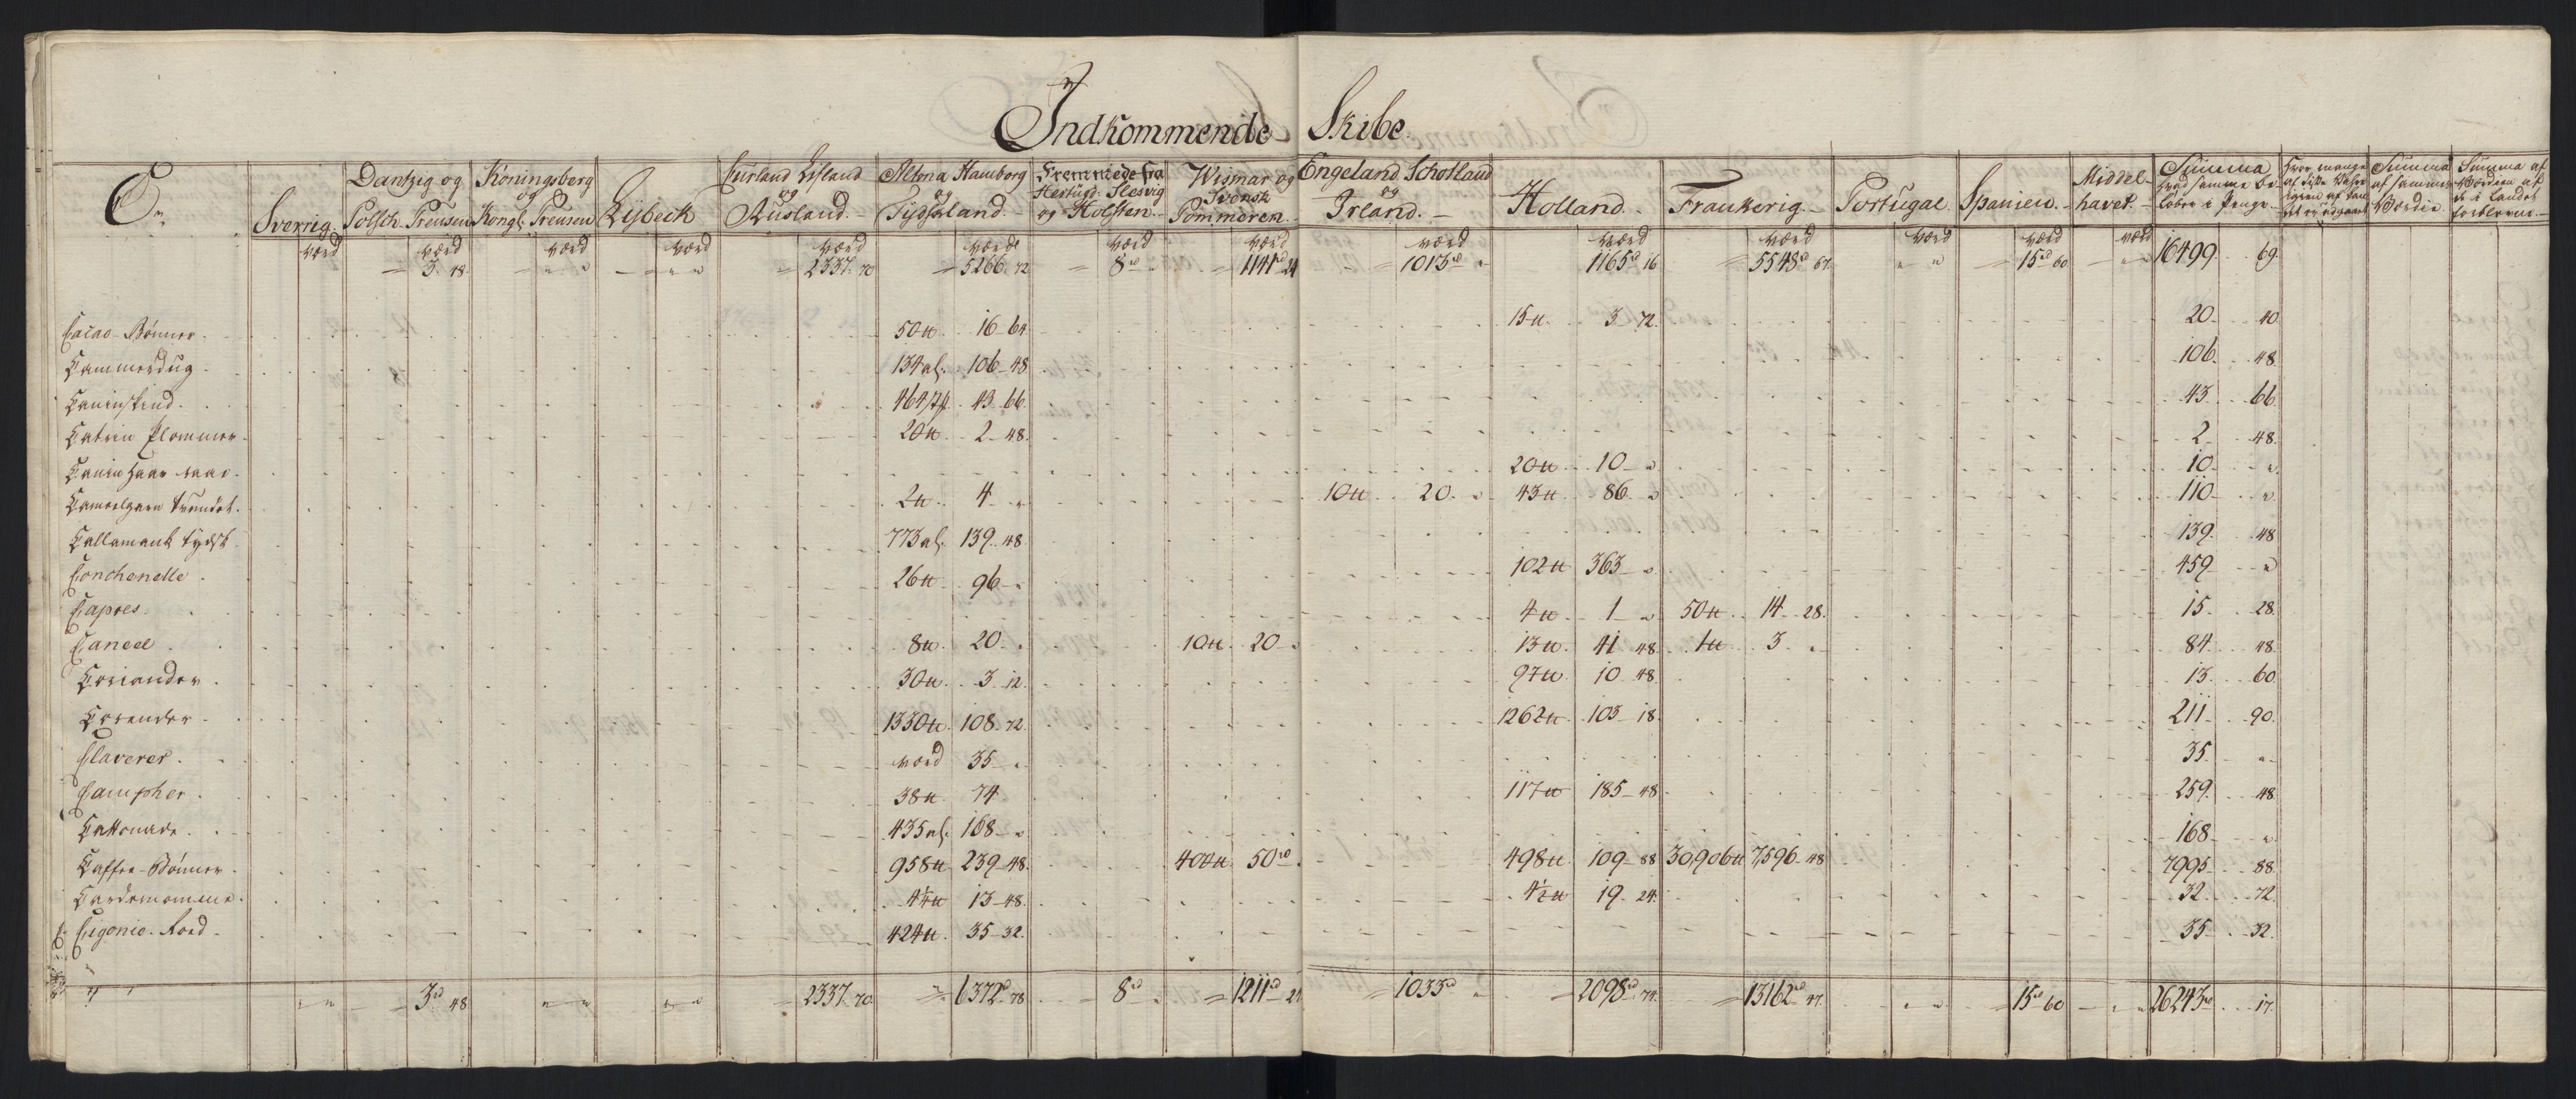 Indkommende Skibe.
C. Sverrig. Dantzig og Polsch-Preusen Köningsberg og Kongl: Preusen Lÿbeck Curland Lifland og Rusland. Altona Hamborg og Tÿdskland. Fremmede fra Hertüg: Slesvig og Holsten. Wismar og Svensk Pommeren. Engeland Schotland og Irland. Holland. Frankerig. Portugal. Spanien. Middel-havet. Summa
værd værd værd værd værd værd værd værd værd værd værd værd værd værd
3. 48. 2337. 70 5266. 72 8 rd 1141 rd 24 1013 rd 1165 rd 16 5548 rd 67. 15 rd 60 16499. 69.
Cacao-Bönner. 50 ℔. 16-64 15 ℔. 3-72. 20. 40
Cammerdug. 134 al. 106-48 106. 48
Caninskind. 464 43-66. 43. 66.
Catrin Plommer. 20 ℔. 2-48. 2. 48.
Canin Haar 20 ℔. 10- 10.
Cameelgarn tvundet. 2 ℔. 4 10 ℔. 20. 43 ℔. 86. 110.
Callamank tydsk. 773 al. 139-48. 139. 48
Conchenelle. 26 ℔. 96. 102 ℔ 363 459
Capres. 4 ℔. 1 50 ℔. 14-28. 15. 28.
Caneel. 8 ℔. 20. 10 ℔. 20 13 ℔. 41 48 1 ℔ 3. 84. 48.
Coriander. 30 ℔. 3-12. 97 ℔. 10-48. 13. 60.
Corender. 1330 ℔. 108-72. 1262 ℔. 103-18. 211. 90.
Claverer. værd 35 35.
Campher. 38 ℔. 74 117 ℔ 185-48 259. 48
Cattonade. 435 al. 168 168
Caffee-Bönner. 958 ℔ 239-48. 400 ℔. 50 rd. 498 ℔. 109-88 30,906 ℔ 7,596-48 7995. 88.
Cardemomme. 4½ ℔ 13-48. 4½ ℔ 19-24. 32. 72.
Cigorie-Roed. 424 ℔. 35-32. 35. 32.
3 rd 48 2337. 70. 6372 rd 78 8 rd 1211 rd 24 1033 rd 2098 rd 74. 13162 rd 47. 15 rd 60 26243 rd 17.